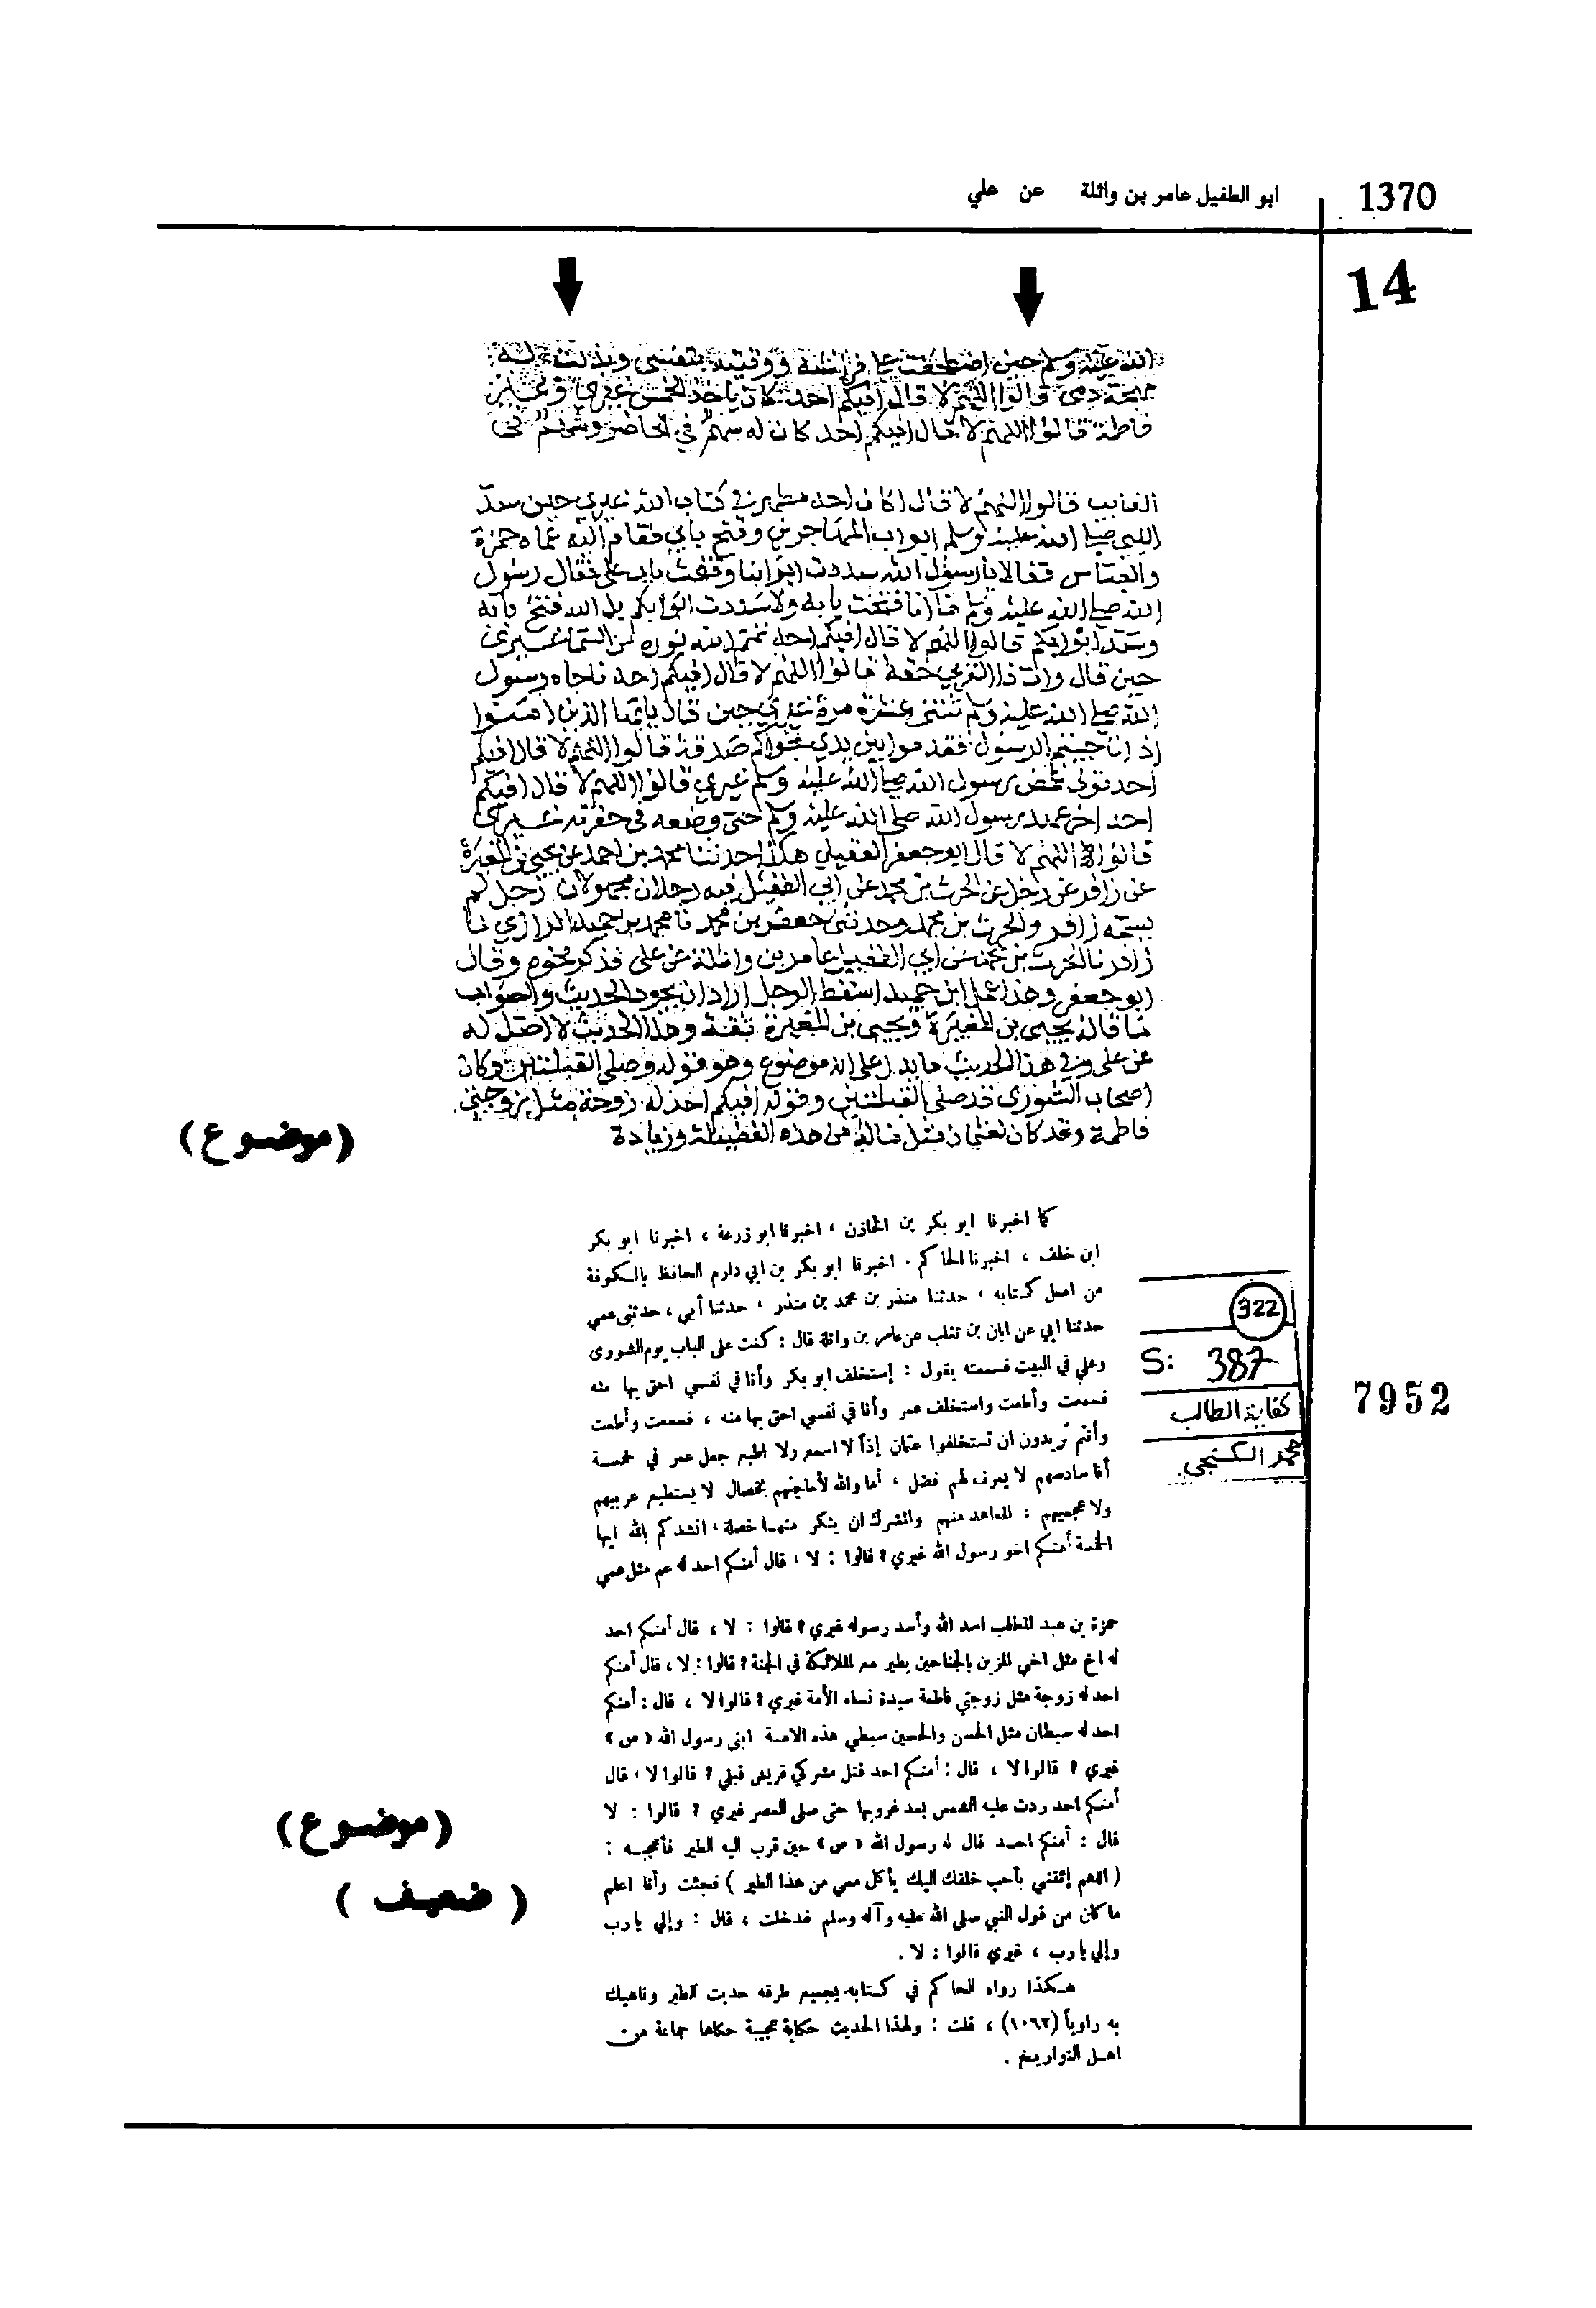 1370
ابو الطفيل عامر بن واثلة عن علي
14
الله عليه وسلم حين اضطجعت على فراشه ووقيته بنفسي وبذلت له
مهجة دمي قالوا اللهم لا قال افيكم احد كان ياخذ الخمس غيري وغير
فاطمة قالوا اللهم لا قال افيكم احد كان له سهم في الحاضر وسهم في
الغايب قالوا اللهم لا قال اكان احد مطهر في كتاب الله غيري حين سد
النبي صلى الله عليه وسلم ابواب المهاجرين وفتح بابي فقام اليه عماه حمزة
والعباس فقالا يا رسول الله سددت ابوابنا وفتحت باب علي فقال رسول
الله صلى الله عليه وسلم ما انا فتحت بابه ولا سددت ابوابكم بل الله فتح بابه
وسد ابوابكم قالوا اللهم لا قال افيكم احد تمم الله نوره من السماء غيري
حين قال وات ذا القربى حقه قالوا اللهم لا قال افيكم احد ناجاه رسول
الله صلى الله عليه وسلم ثنتي عشرة مرة غيري حين قال يا يها الذين امنوا
اذا ناجيتم الرسول فقدموا بين يدي نجواكم صدقة قالوا اللهم لا قال افيكم
احد تولى غمض رسول الله صلى الله عليه وسلم غيري قالوا اللهم لا قال افيكم
احد اخر عهده برسول الله صلى الله عليه وسلم حتى وضعه في حفرته غيري
قالوا اللهم لا قال ابو جعفر العقيلي هكذا حدثنا محمد بن احمد عن يحيى بن المغيرة
عن زافر عن رجل عن الحرث بن محمد عن ابي الطفيل فيه رجلان مجهولان رجل لم
يسمه زافر والحرث بن محمد وحدثني جعفر بن محمد نا محمد بن حميد الرازي نا
زافر نا الحرث بن محمد عن ابي الطفيل عامر بن واثلة عن علي فذكر نحوه وقال
ابو جعفر وهذا عمل ابن حميد اسقط الرجل اراد ان يجود الحديث والصواب
ما قاله يحيى بن المغيرة ويحيى بن المغيرة ثقة وهذا الحديث لا اصل له
عن علي وفي هذا الحديث ما يدل على انه موضوع وهو قوله وصلى القبلتين وكان
اصحاب الشورى قد صلى القبلتين وقوله افيكم احد له زوجة مثل زوجتي
فاطمة وقد كان لعثمان مثل ماله من هذه الفضيلة وزيادة
(موضوع)
كما اخبرنا ابو بكر بن الخازن ، اخبرنا ابو زرعة ، اخبرنا ابو بكر
ابن خلف ، اخبرنا الحاكم . اخبرنا ابو بكر بن ابي دارم الحافظ بالكوفة
من اصل كتابه ، حدثنا منذر بن محمد بن منذر ، حدثنا أبي ، حدثني عمي
حدثنا ابي عن ابان بن تغلب عن عامر بن واثلة قال : كنت على الباب يوم الشورى
وعلي في البيت فسمعته يقول : إستخلف ابو بكر وأنا في نفسي احق بها منه
فسمعت وأطعت واستخلف عمر وأنا في نفسي احق بها منه ، فسمعت وأطعت
وأنتم تريدون ان تستخلفوا عثمان إذاً لا اسمع ولا اطيع جعل عمر في خمسة
أنا سادسهم لا يعرف لهم فضل ، أما والله لأحاجنهم بخصال لا يستطيع عربيهم
ولا عجميهم ، المعاهد منهم والمشرك ان ينكر منها خصلة ، انشدكم بالله ايها
الخمسة أمنكم اخو رسول الله غيري ؟ قالوا : لا ، قال أمنكم احد له عم مثل عمي
حمزة بن عبد المطلب اسد الله وأسد رسوله غيري ؟ قالوا : لا ، قال أمنكم احد
له اخ مثل اخي المزين بالجناحين يطير مع الملائكة في الجنة ؟ قالوا : لا ، قال أمنكم
احد له زوجة مثل زوجتي فاطمة سيدة نساء الأمة غيري ؟ قالوا لا ، قال : أمنكم
احد له سبطان مثل الحسن والحسين سبطي هذه الامة ابنى رسول الله « ص »
غيري ؟ قالوا لا ، قال : أمنكم احد قتل مشركي قريش قبلي ؟ قالوا لا ، قال
أمنكم احد ردت عليه الشمس بعد غروبها حتى صلى العصر غيري ؟ قالوا : لا
قال : أمنكم احد قال له رسول الله « ص » حين قرب اليه الطير فأعجبه :
( اللهم إئتني بأحب خلقك اليك يأكل معي من هذا الطير ) فجئت وأنا اعلم
ما كان من قول النبي صلى الله عليه وآله وسلم فدخلت ، قال : وإلي يارب
وإلي يارب ، غيري قالوا : لا .
هكذا رواه الحاكم في كتابه بجميع طرقه حديث الطير وناهيك
به راوياً (١٠٦٢) ، قلت : ولهذا الحديث حكاية عجيبة حكاها جماعة من
اهل التواريخ .
(موضوع)
( ضعيف )
322
S: 387
كفاية الطالب
محمد الكنجي
7952